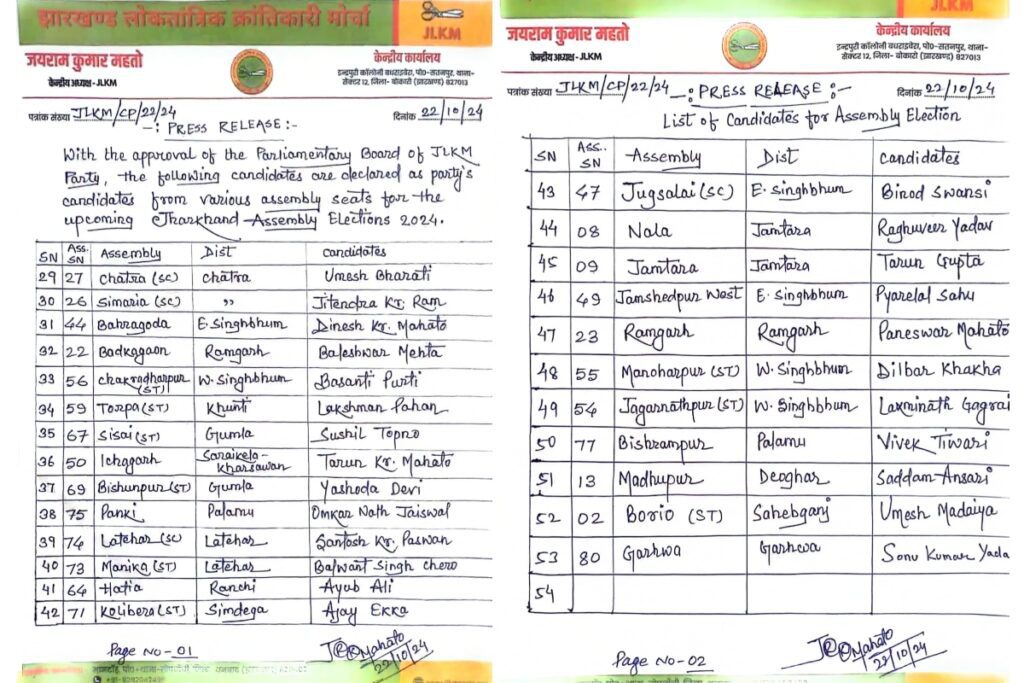 झारखण्ड लोकतांत्रिक क्रांतिकारी मोर्चा
JLKM
जयराम कुमार महतो
केन्द्रीय अध्यक्ष - JLKM
केन्द्रीय कार्यालय
इन्द्रपुरी कॉलोनी बधराईबेरा, पो०-सतनपुर, थाना-
सेक्टर 12, जिला- बोकारो (झारखण्ड) 827013
पत्रांक संख्या JLKM/CP/22/24
दिनांक 22/10/24
-: PRESS RELEASE:-
With the approval of the Parliamentary Board of JLKM
Party, the following candidates are declared as party's
candidates from various assembly seats for the
upcoming Jharkhand Assembly Elections 2024.
SN Ass. SN Assembly Dist Candidates
29 27 Chatra (SC) Chatra Umesh Bharati
30 26 Simaria (SC) " Jitendra Kr. Ram
31 44 Bahragoda E. Singhbhum Dinesh Kr. Mahato
32 22 Badkagaon Ramgarh Baleshwar Mehta
33 56 Chakradharpur (ST) W. Singhbhum Basanti Purti
34 59 Torpa (ST) Khunti Lakshman Pahan
35 67 Sisai (ST) Gumla Sushil Topno
36 50 Ichagarh Saraikela-Kharsawan Tarun Kr. Mahato
37 69 Bishunpur (ST) Gumla Yashoda Devi
38 75 Panki Palamu Omkar Nath Jaiswal
39 74 Latehar (SC) Latehar Santosh Kr. Paswan
40 73 Manika (ST) Latehar Balwant Singh Chero
41 64 Hatia Ranchi Ayub Ali
42 71 Kolibera (ST) Simdega Ajay Ekka
Page No-01
Mahato
22/10/24
JLKM
जयराम कुमार महतो
केन्द्रीय अध्यक्ष - JLKM
केन्द्रीय कार्यालय
इन्द्रपुरी कॉलोनी बधराईबेरा, पो०-सतनपुर, थाना-
सेक्टर 12, जिला- बोकारो (झारखण्ड) 827013
पत्रांक संख्या JLKM/CP/22/24 -: PRESS RELEASE:- दिनांक 22/10/24
List of Candidates for Assembly Election
SN Ass. SN Assembly Dist Candidates
43 47 Jugsalai (SC) E. Singhbhum Binod Swansi
44 08 Nala Jamtara Raghuveer Yadav
45 09 Jamtara Jamtara Tarun Gupta
46 49 Jamshedpur West E. Singhbhum Pyarelal Sahu
47 23 Ramgarh Ramgarh Paneswar Mahato
48 55 Manoharpur (ST) W. Singhbhum Dilbar Khakha
49 54 Jagarnathpur (ST) W. Singhbhum Laxminath Gagrai
50 77 Bishrampur Palamu Vivek Tiwari
51 13 Madhupur Deoghar Saddam Ansari
52 02 Borio (ST) Sahebganj Umesh Madaiya
53 80 Garhwa Garhwa Sonu Kumar Yada
54
Page No-02
Mahato
22/10/24